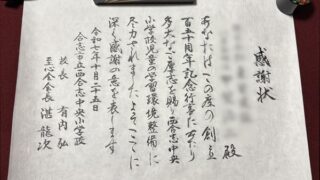 感謝状
殿
あなたはこの度の創立
百五十周年記念行事にあたり
多大なご厚志を賜り西合志中央
小学校児童の学習環境整備に
尽力されました よってここに
深く感謝の意を表します
令和七年十月二十五日
合志市立西合志中央小学校
校長 有内弘
至心会会長 湛龍次